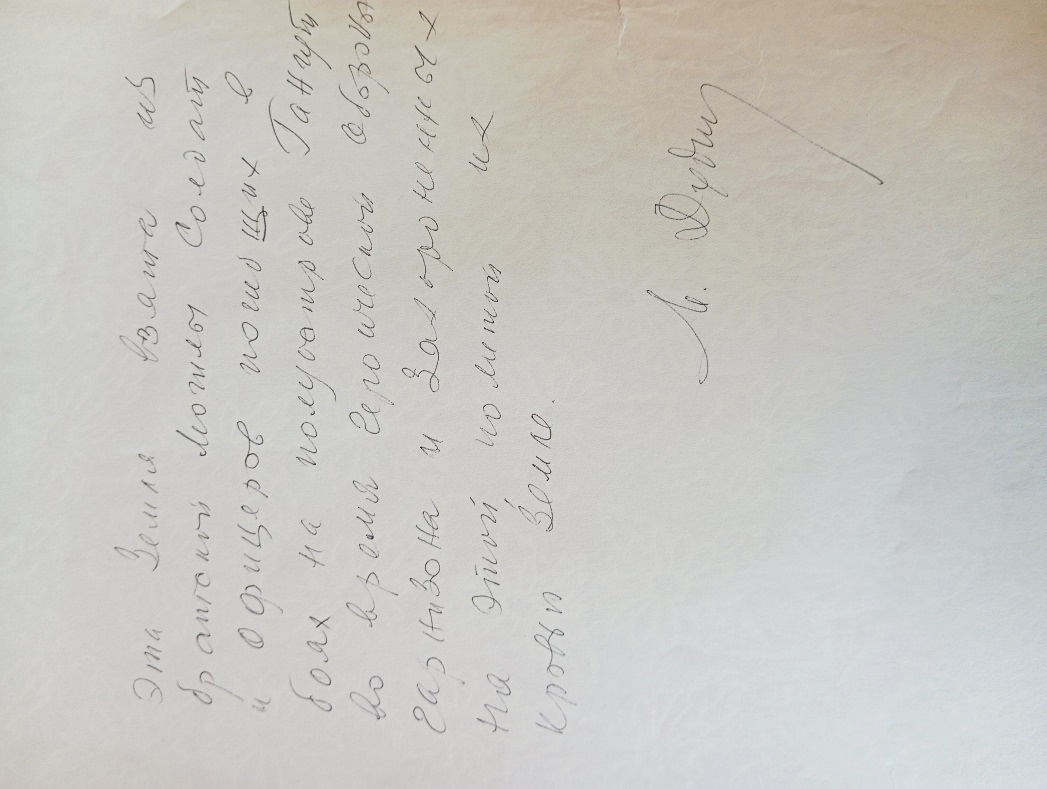 Эта Земля взята из
братской могилы Солдат
и офицеров погибщих в
боях на полуострове Гангут
во время героической обороны
гарнизона и Захороненных
на этой политой их
кровью Земле.
М. Дудин